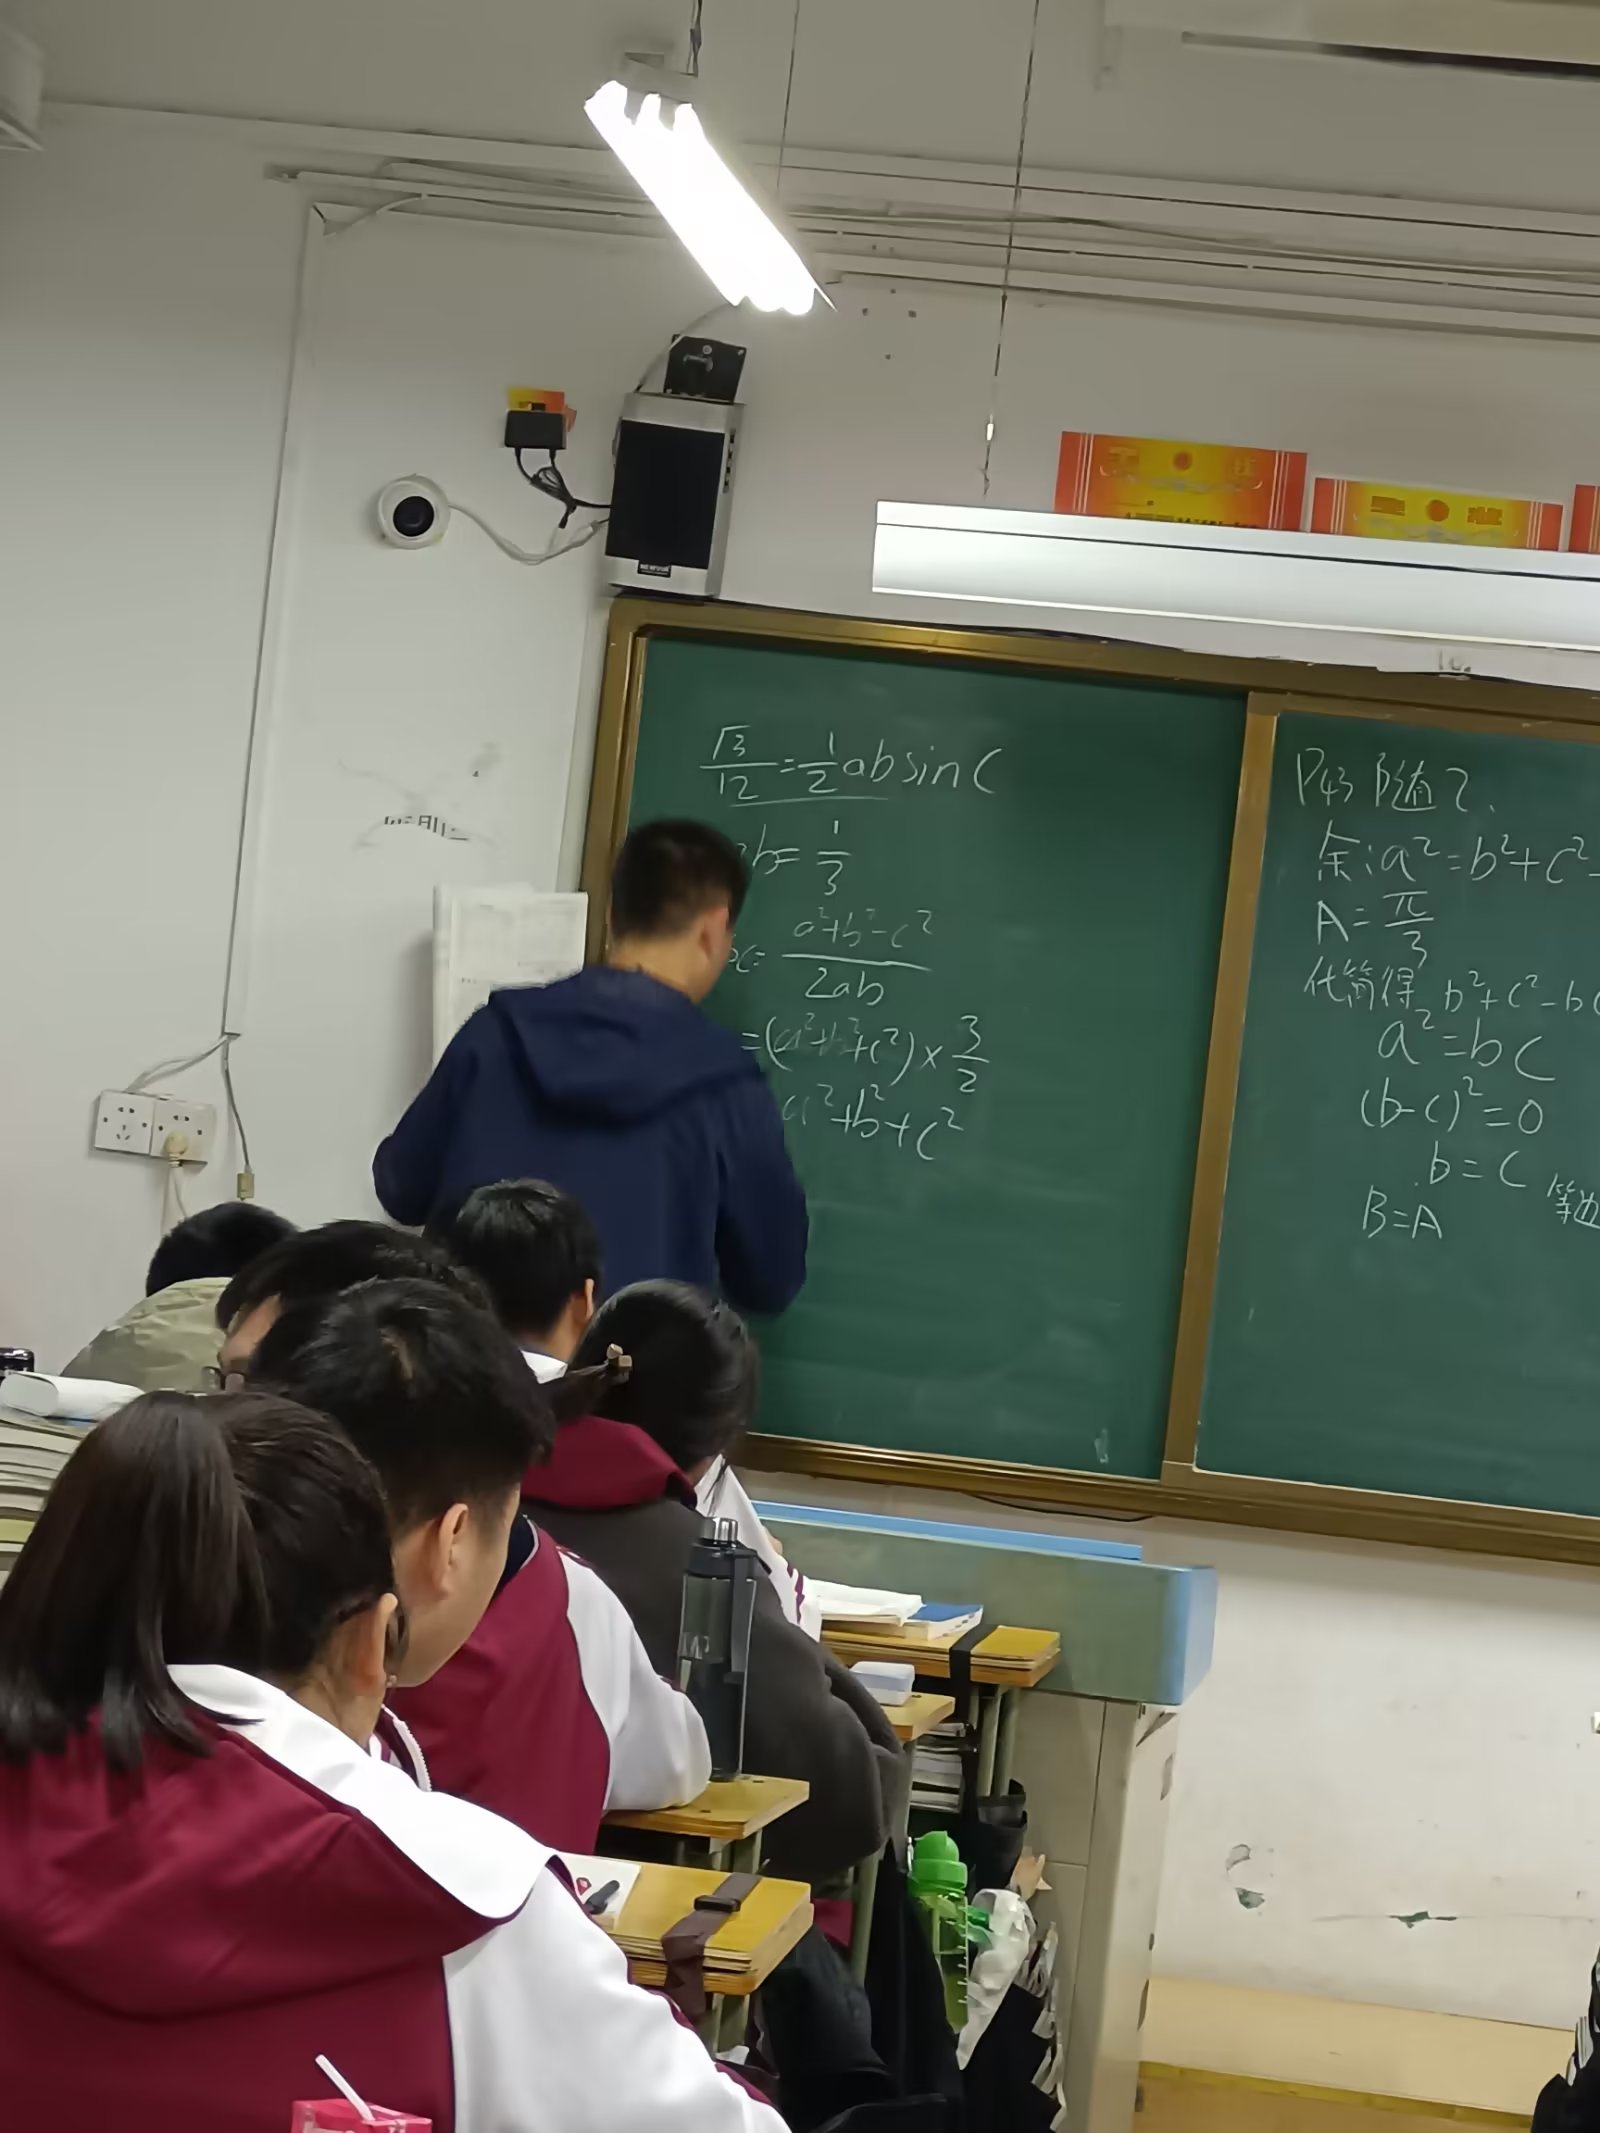 √3/12 = 1/2 ab sin C
b = 1/3
= (a²+b²-c²)/(2ab)
=(a²+b²+c²)×3/2
a²+b²+c²
P43 随2、
余:a²=b²+c²-
A=π/3
代简得 b²+c²-bc
a²=bc
(b-c)²=0
b=c 等边
B=A